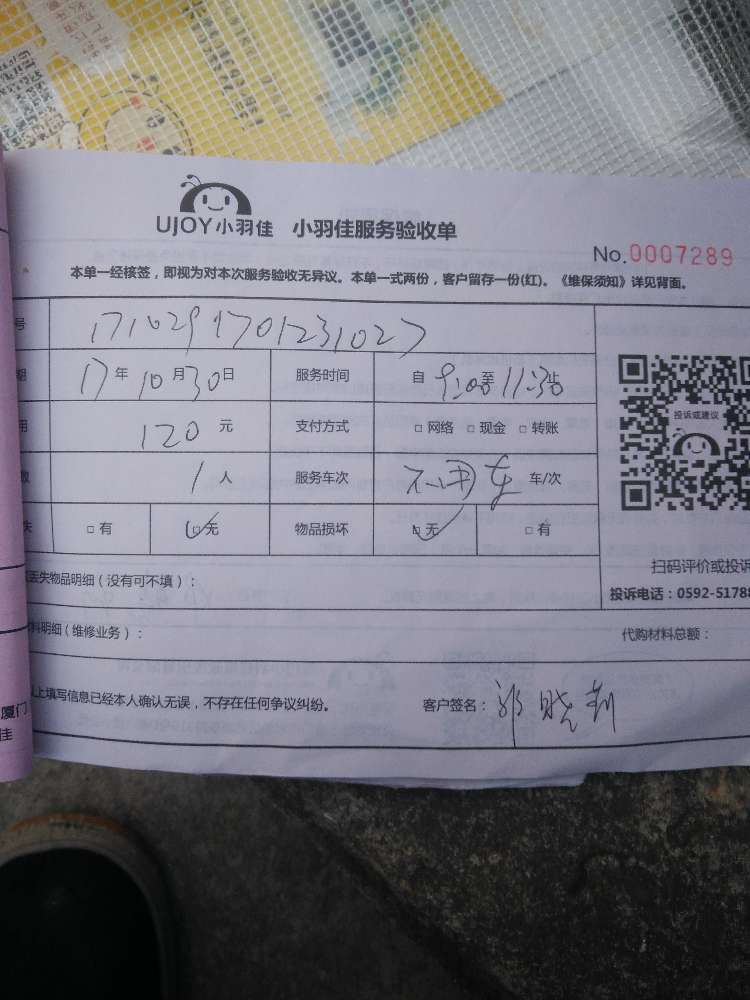 UJOY小羽佳 小羽佳服务验收单
No.0007289
本单一经核签，即视为对本次服务验收无异议。本单一式两份，客户留存一份(红)。《维保须知》详见背面。
号 1710291701231027
期 17年10月30日 服务时间 自9:00至11:30止
用 120元 支付方式 □网络 □现金 □转账
数 1人 服务车次 不用车 车/次
失 □有 □无 物品损坏 □无 □有
投诉或建议
扫码评价或投诉
投诉电话：0592-51788
丢失物品明细（没有可不填）：
料明细（维修业务）： 代购材料总额：
以上填写信息已经本人确认无误，不存在任何争议纠纷。 客户签名：郭晓莉
厦门
佳